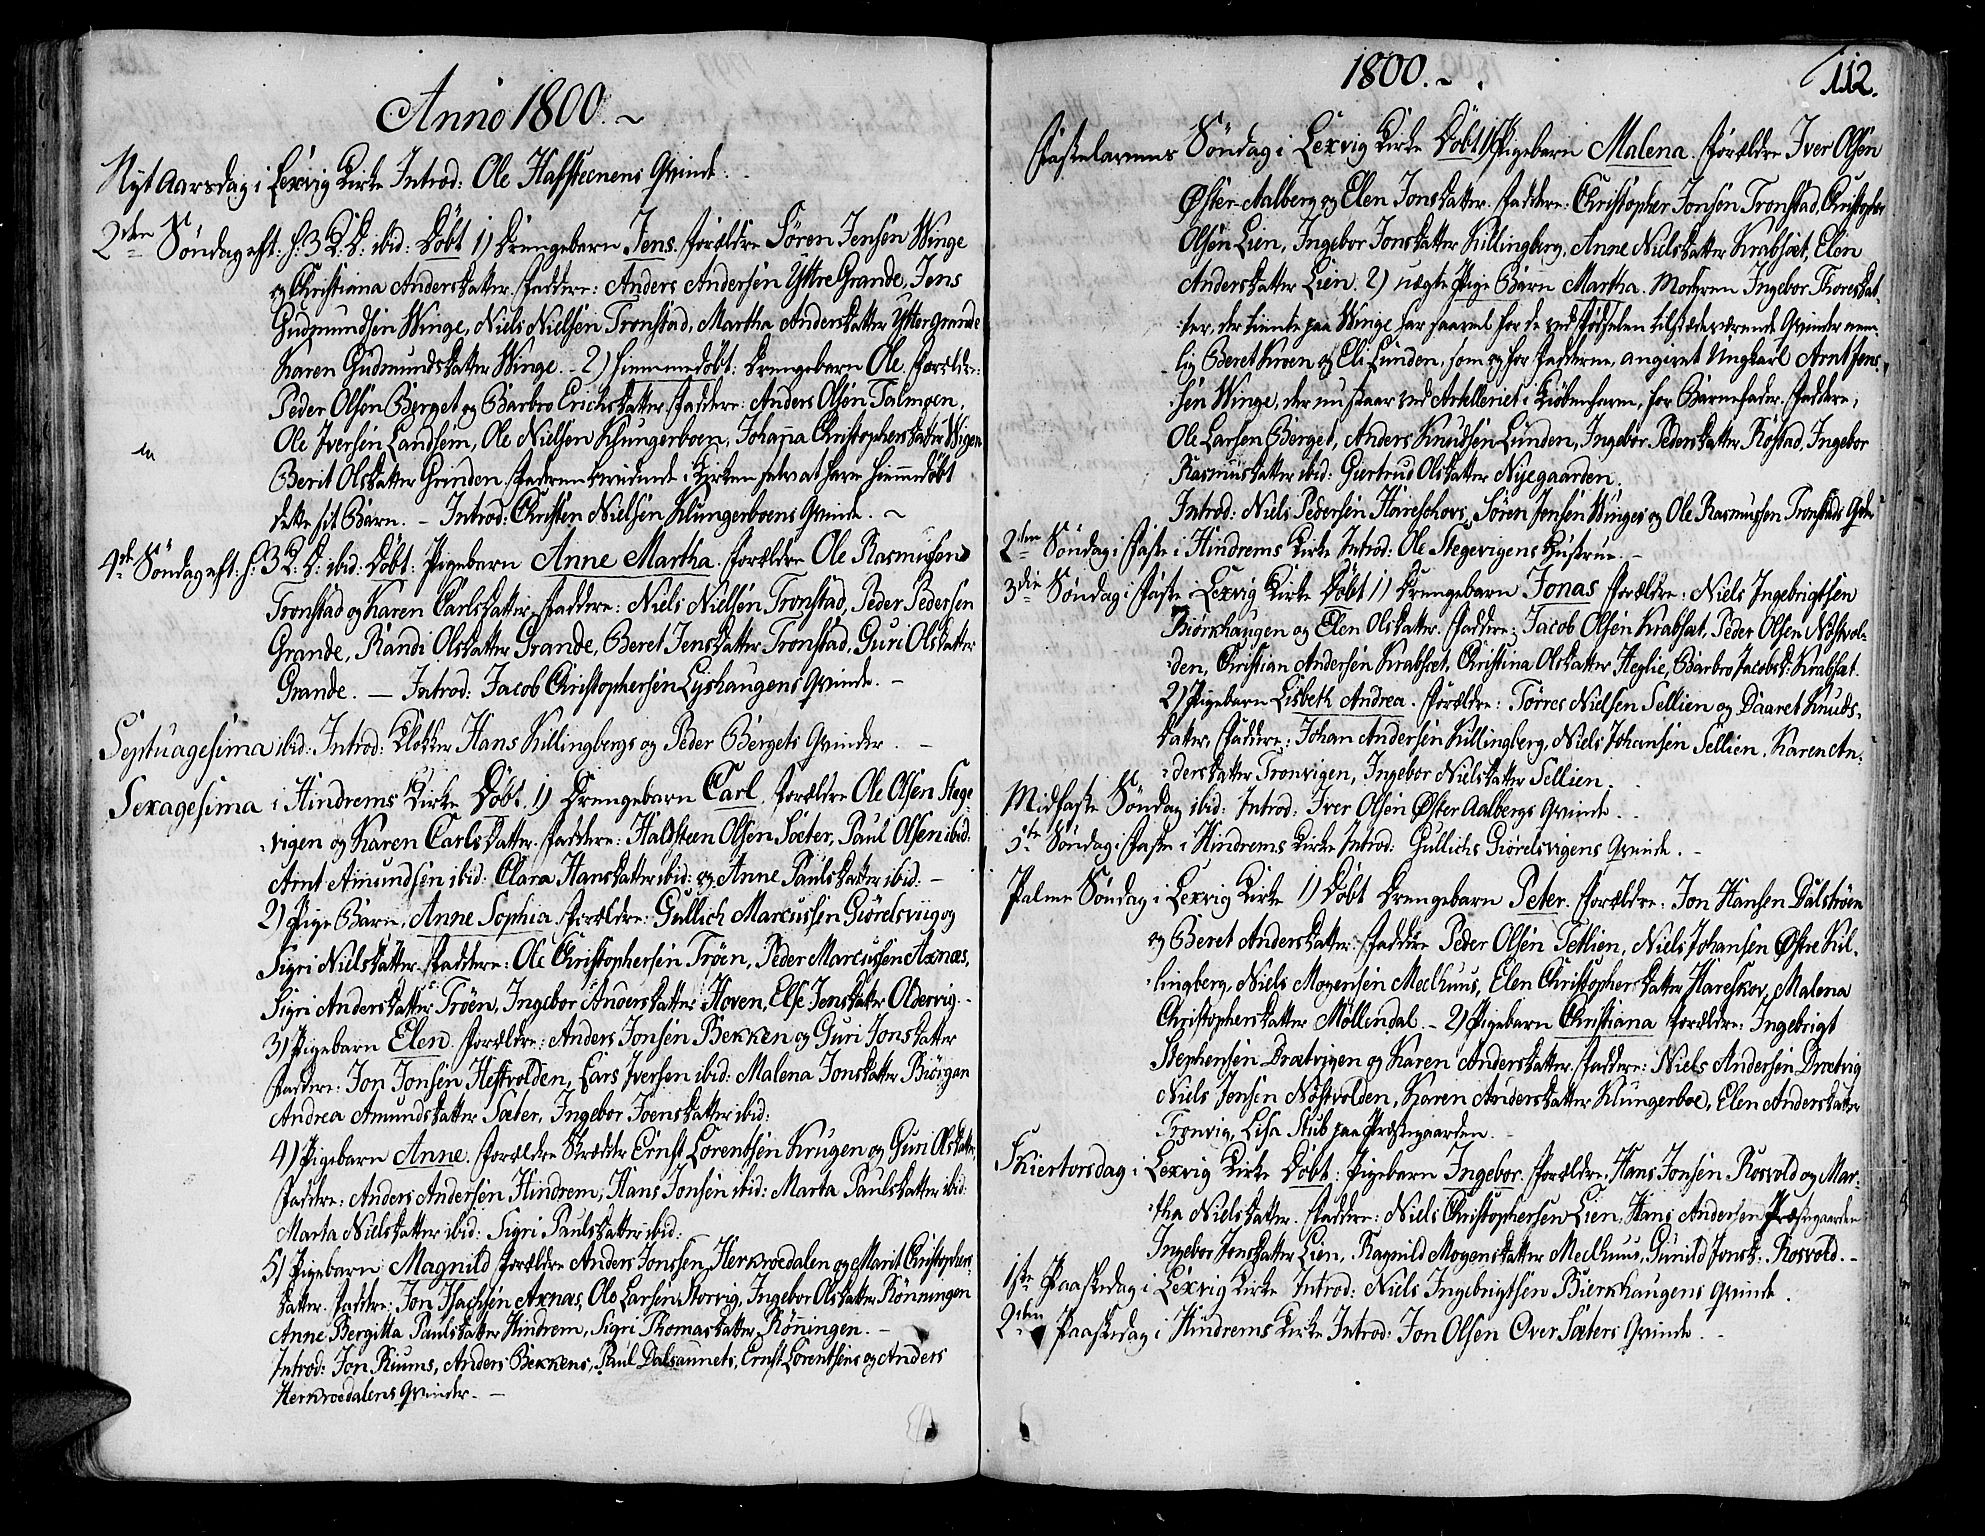 Anno 1800. ~
Nyt Aarsdag i Lexvig Kirke Introd: Ole Hafsteenens Qvinde.
2den Søndag eft: H: 3 K: D: ibid: Döbt 1) Drengebarn Jens. Forældre Sören Jensen Winge
og Christiana Andersdatter. Faddere: Anders Andersen Yttre Grande, Jens
Gudmundsen Winge, Niels Nielsen Tronstad, Martha Andersdatter Ytter Grande
Karen Gudmundsdatter Winge. - 2) Hiemmedöbt: Drengebarn Ole. Forældre:
Peder Olsen Berget og Barbro Erichsdatter. Faddere: Anders Olsen Talmoen,
Ole Iversen Landsem, Ole Nielsen Klungerboen, Johanna Christophersdatter Wigen
Berit Olsdatter Grinden. Faderen beviidnede i Kirken selv at have hiemmedöbt
dette sit Barn. - Introd: Christen Nielsen Klungerboens Qvinde. ~
4de Søndag eft: H: 3 K: D: ibid: Döbt: Pigebarn Anne Martha. Forældre Ole Rasmusen
Tronstad og Karen Carlsdatter. Faddere: Niels Nielsen Tronstad, Peder Pedersen
Grande, Randi Olsdatter Grande, Beret Jensdatter Tronstad, Guri Olsdatter
Grande. - Introd: Jacob Christophersen Lyshaugens Qvinde. -
Septuagesima ibid: Introd: Klokker Hans Killingbergs og Peder Bergets Qvinder. -
Sexagesima i Hindrems Kirke Döbt. 1) Drengebarn Carl. Forældre Ole Olsen Stege-
vigen og Karen Carlsdatter. Faddere: Haldsteen Olsen Sæter, Paul Olsen ibid:
Arnt Amundsen ibid: Clara Hansdatter ibid: og Anne Paulsdatter ibid: -
2) Pige Barn, Anne Sophia. Forældre: Gullich Marcussen Giördsviig og
Sigri Nielsdatter. Faddere: Ole Christophersen Tröen, Peder Marcussen Axnæs,
Sigri Andersdatter Tröen, Ingebor Andersdatter Hoven, Else Jensdatter Oldervig. -
3) Pigebarn Elen. Forældre: Anders Jonsen Bekken og Guri Jonsdatter
Faddere: Jon Jonsen Hestvolden, Lars Iversen ibid: Malena Jonsdatter Biörgan
Andrea Amundsdatter Sæter, Ingebor Joensdatter ibid:
4) Pigebarn Anne. Forældre Skrædder Ernst Lorentsen Krugen og Guri Olsdatter
Faddere: Anders Andersen Hindrem, Hans Jonsen ibid: Marta Paulsdatter ibid:
Marta Nielsdatter ibid: Sigri Paulsdatter ibid:
5) Pigebarn Magnild Forældre Anders Jonssen Herkroedalen og Marit Christophers-
datter. Faddere: Jon Isachsen Axnæs, Ole Larsen Storvig, Ingebor Olsdatter Rönningen
Anne Bergitta Paulsdatter Hindrem, Sigri Thomasdatter Rönningen. -
Introd: Jon Riums, Anders Bekkens, Paul Dalsaunets, Ernst Lorentsens og Anders
Herkroedalens Qvinder. -
1800. ~
112.
Fastelavens Søndag i Lexvig Kirke Döbt 1) Pigebarn Malena. Forældre Iver Olsen
Øster Aalberg og Elen Jonsdatter. Faddere: Christopher Jonsen Tronstad, Christopher
Olsen Lien, Ingebor Jonsdatter Killingberg, Anne Nielsdatter Krabsæt, Elen
Andersdatter Lien. 2) uægte Pige Barn Martha. Moderen Ingebor Thoresdat-
ter, der tiente paa Winge har saavel for de ved Födselen tilstædeværende Qvinder nem-
lig Beret Kroen og Eli Linden, som og for Fadderne, angevet Ungkarl Arnt Jens-
sen Winge, der nu staar ved Artelleriet i Kiöbenhavn, for Barnefader. Faddere;
Ole Larsen Berget, Anders Knudsen Linden, Ingebor Pedersdatter Rostad, Ingebor
Rasmusdatter ibid: Giertrud Olsdatter Nyegaarden.
Introd: Niels Pedersen Hareschovs, Sören Jensen Winges og Ole Rasmussen Tronstads Qvin
2den Søndag i Faste i Hindrems Kirke Introd: Ole Stegevigens Hustrue. -
3die Søndag i Faste i Lexvig Kirke Döbt 1) Drengebarn Jonas Forældre: Niels Ingebrigtsen
Biörkhaugen og Elen Olsdatter. Faddere: Jacob Olsen Krabsæt, Peder Olsen Nöstvol-
den, Christian Andersen Krabsæt, Christina Olsdatter Heglie, Barbro Jacobsd: Krabsæt.
2) Pigebarn Lisbeth Andrea. Forældre: Torres Nielsen Sellien og Daaret Knuds-
datter, Faddere: Johan Andersen Killingberg, Niels Johansen Sellien, Karen An-
dersdatter Tronvigen, Ingebor Nielsdatter Sellien.
Midfaste Søndag ibid: Introd: Iver Olsen Øster Aalbergs Qvinde.
5te Søndag i Faste i Hindrems Kirke Introd: Gullichs Giördsvigens Qvinde. -
Palme Søndag i Lexvig Kirke 1) Döbt Drengebarn Peter. Forældre: Jon Hansen Dalströen
og Beret Andersdatter. Faddere Peder Olsen Sellien, Niels Johansen Østre Kil-
lingberg, Niels Mogensen Meelhuus, Elen Christophersdatter Hareskov, Malena
Christophersdatter Möllendal. - 2) Pigebarn Christiana Forældre: Ingebrigt
Stephensen Drætvigen og Karen Andersdatter. Faddere: Niels Andersen Drætvig
Niels Jensen Nöstvolden, Karen Andersdatter Klungerboe, Elen Andersdatter
Tronvig, Lisa Stub paa Præstegaarden.
Skiertorsdag i Lexvig Kirke Döbt: Pigebarn Ingebor. Forældre: Hans Jonsen Rosvold og Mar-
tha Nielsdatter. Faddere: Niels Christophersen Lien, Hans Andersen Præstegaarden
Ingebor Jonsdatter Lien, Ragnild Mogensdatter Meelhuus, Gunild Jonsd: Rosvold. -
1ste Paaskedag i Lexvig Kirke Introd: Niels Ingebrigtsen Bierkhaugens Qvinde.
2den Paaskedag i Hindrems Kirke Introd: Jon Olsen Over Sæters Qvinde. -